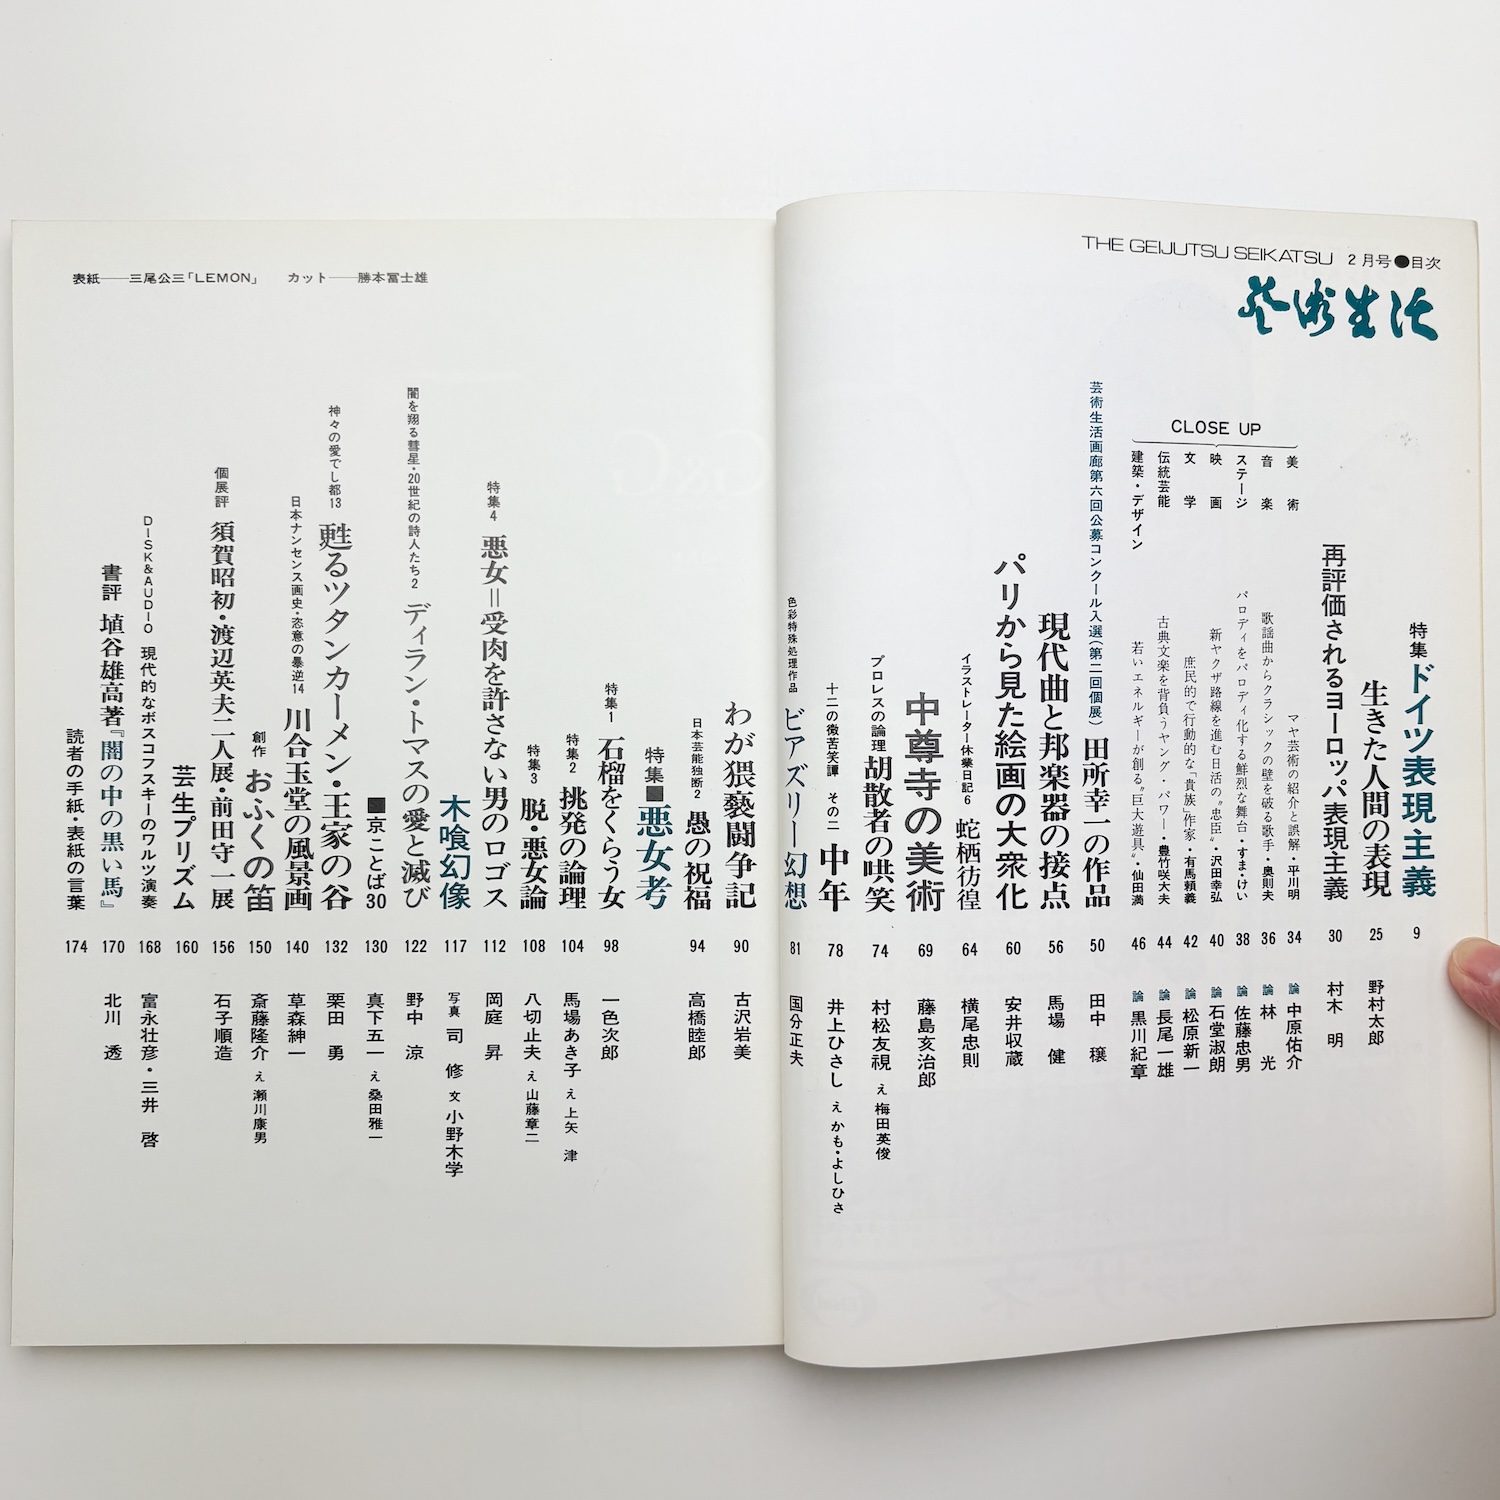 THE GEIJUTSU SEIKATSU 2月号●目次
芸術生活
特集 ドイツ表現主義 9
生きた人間の表現 25 野村太郎
再評価されるヨーロッパ表現主義 30 村木 明
CLOSE UP
美術 マヤ芸術の紹介と誤解・平川明 34 論 中原佑介
音楽 歌謡曲からクラシックの壁を破る歌手・奥則夫 36 論 林 光
ステージ パロディをパロディ化する鮮烈な舞台・すま・けい 38 論 佐藤忠男
映画 新ヤクザ路線を進む日活の〝忠臣〟・沢田幸弘 40 論 石堂淑朗
文学 庶民的で行動的な「貴族」作家・有馬頼義 42 論 松原新一
伝統芸能 古典文楽を背負うヤング・パワー・豊竹咲大夫 44 論 長尾一雄
建築・デザイン 若いエネルギーが創る〝巨大遊具〟・仙田満 46 論 黒川紀章
芸術生活画廊第六回公募コンクール入選(第二回個展) 田所幸一の作品 50 田中 穣
現代曲と邦楽器の接点 56 馬場 健
パリから見た絵画の大衆化 60 安井収蔵
イラストレーター休業日記6 蛇栖彷徨 64 横尾忠則
中尊寺の美術 69 藤島亥治郎
プロレスの論理 胡散者の哄笑 74 村松友視 え 梅田英俊
十二の微苦笑譚 その二 中年 78 井上ひさし え かも・よしひさ
色彩特殊処理作品 ビアズリー幻想 81 国分正夫
表紙──三尾公三「LEMON」 カット──勝本冨士雄
わが猥褻闘争記 90 古沢岩美
日本芸能独断2 愚の祝福 94 高橋睦郎
特集■悪女考
特集1 石榴をくらう女 98 一色次郎
特集2 挑発の論理 104 馬場あき子 え 上矢 津
特集3 脱・悪女論 108 八切止夫 え 山藤章二
特集4 悪女＝受肉を許さない男のロゴス 112 岡庭 昇
木喰幻像 117 写真 司 修 文 小野木学
闇を翔る彗星・20世紀の詩人たち2 ディラン・トマスの愛と滅び 122 野中 涼
■京ことば30 130 真下五一 え 桑田雅一
神々の愛でし都13 甦るツタンカーメン・王家の谷 132 栗田 勇
日本ナンセンス画史・恣意の暴逆14 川合玉堂の風景画 140 草森紳一
創作 おふくの笛 150 斎藤隆介 え 瀬川康男
個展評 須賀昭初・渡辺英夫二人展・前田守一展 156 石子順造
芸生プリズム 160
DISK&AUDIO 現代的なボスコフスキーのワルツ演奏 168 富永壮彦・三井 啓
書評 埴谷雄高著『闇の中の黒い馬』 170 北川 透
読者の手紙・表紙の言葉 174